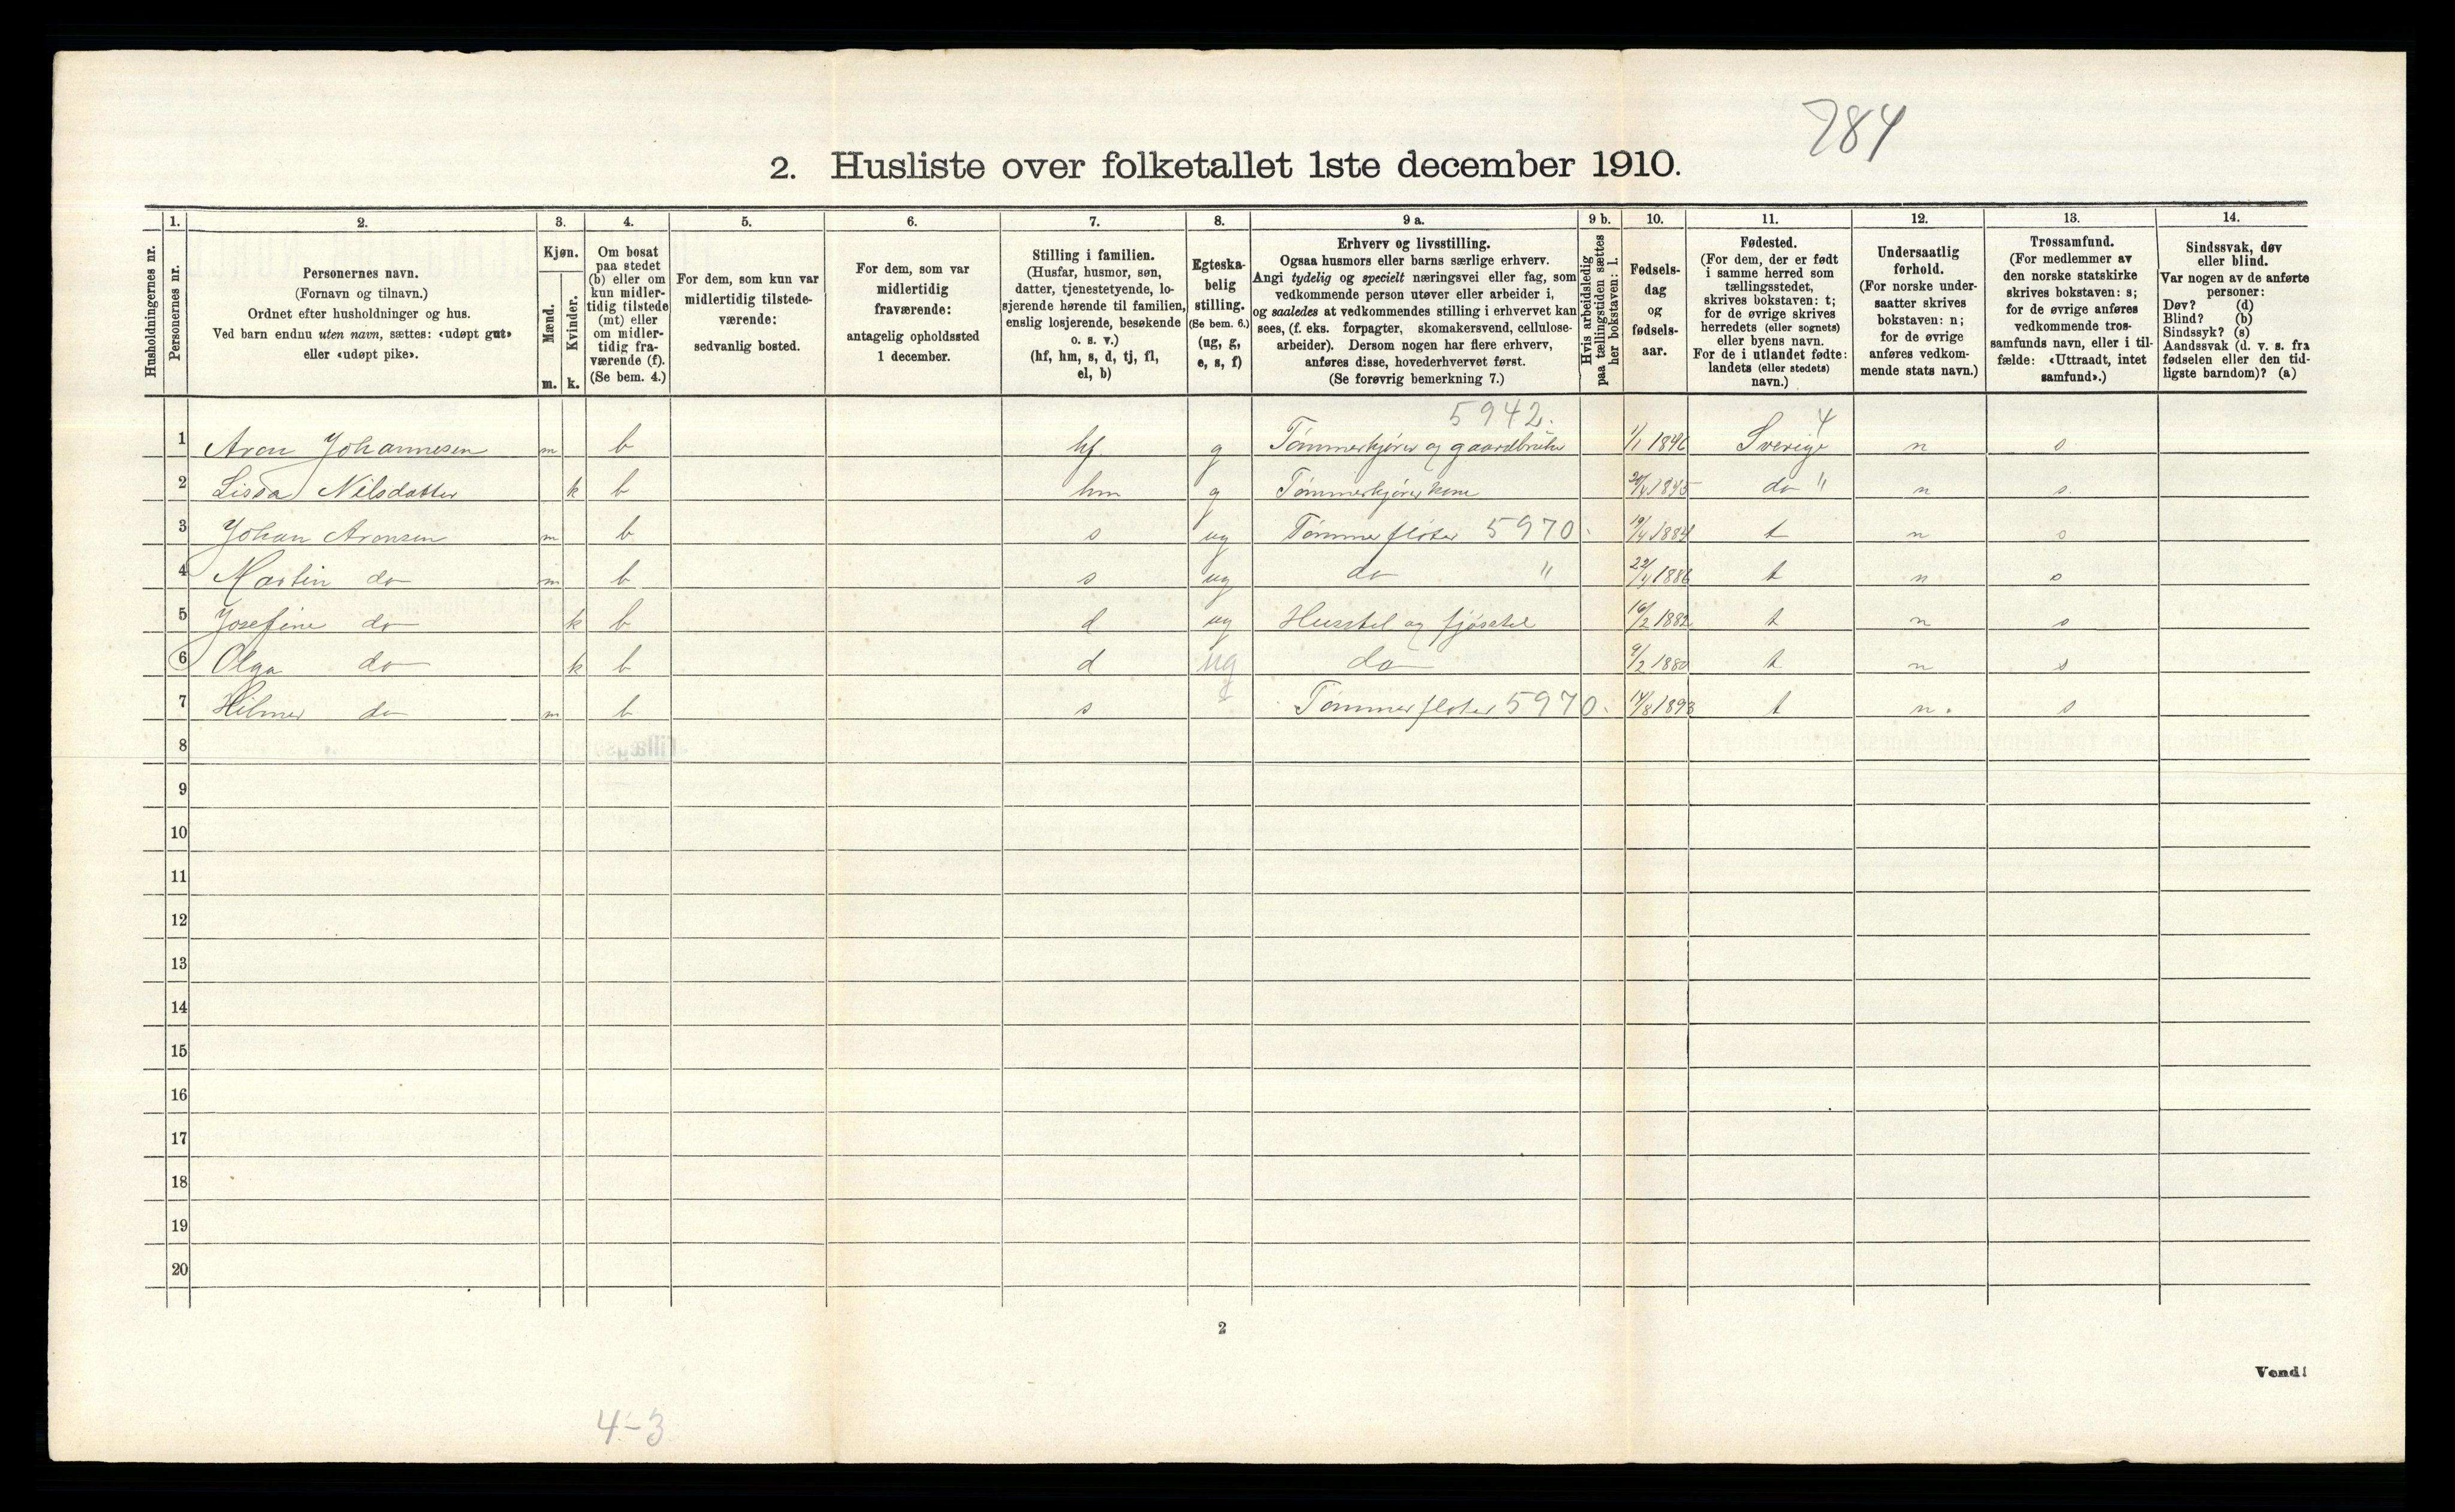 784
2. Husliste over folketallet 1ste december 1910.
Husholdningernes nr.
1. Personernes nr.
2. Personernes navn. (Fornavn og tilnavn.) Ordnet efter husholdninger og hus. Ved barn endnu uten navn, sættes: «udøpt gut» eller «udøpt pike».
3. Kjøn. Mænd. m. Kvinder. k.
4. Om bosat paa stedet (b) eller om kun midlertidig tilstede (mt) eller om midlertidig fraværende (f). (Se bem. 4.)
5. For dem, som kun var midlertidig tilstedeværende: sedvanlig bosted.
6. For dem, som var midlertidig fraværende: antagelig opholdssted 1 december.
7. Stilling i familien. (Husfar, husmor, søn, datter, tjenestetyende, losjerende hørende til familien, enslig losjerende, besøkende o. s. v.) (hf, hm, s, d, tj, fl, el, b)
8. Egteskabelig stilling. (Se bem. 6.) (ug, g, e, s, f)
9 a. Erhverv og livsstilling. Ogsaa husmors eller barns særlige erhverv. Angi tydelig og specielt næringsvei eller fag, som vedkommende person utøver eller arbeider i, og saaledes at vedkommendes stilling i erhvervet kan sees, (f. eks. forpagter, skomakersvend, cellulosearbeider). Dersom nogen har flere erhverv, anføres disse, hovederhvervet først. (Se forøvrig bemerkning 7.)
9 b. Hvis arbeidsledig paa tællingstiden sættes her bokstaven: l.
10. Fødselsdag og fødselsaar.
11. Fødested. (For dem, der er født i samme herred som tællingsstedet, skrives bokstaven: t; for de øvrige skrives herredets (eller sognets) eller byens navn. For de i utlandet fødte: landets (eller stedets) navn.)
12. Undersaatlig forhold. (For norske undersaatter skrives bokstaven: n; for de øvrige anføres vedkommende stats navn.)
13. Trossamfund. (For medlemmer av den norske statskirke skrives bokstaven: s; for de øvrige anføres vedkommende trossamfunds navn, eller i tilfælde: «Uttraadt, intet samfund».)
14. Sindssvak, døv eller blind. Var nogen av de anførte personer: Døv? (d) Blind? (b) Sindssyk? (s) Aandssvak (d. v. s. fra fødselen eller den tidligste barndom)? (a)
5942. 4
1 Aron Johannesen m b hf g Tømmerkjører og gaardbruker 1/1 1846 Sverige n s
2 Lissa Nilsdatter k b hm g Tømmerkjører kone 1845 do " n s.
3 Johan Aronsen m b s ug Tømmerfløter 5970. 19/4 1884 t n s
4 Martin do m b s ug do " 22/4 1886 t n s
5 Josefine do k b d ug Husstel og fjøsstel 16/2 1882 t n s
6 Olga do k b d ug do 9/2 1880 t n s
7 Hilmer do m b s Tømmerfløter 5970. 14/8 1893 t n. s
8
9
10
11
12
13
14
15
16
17
18
19
20
2
Vend!
4-3